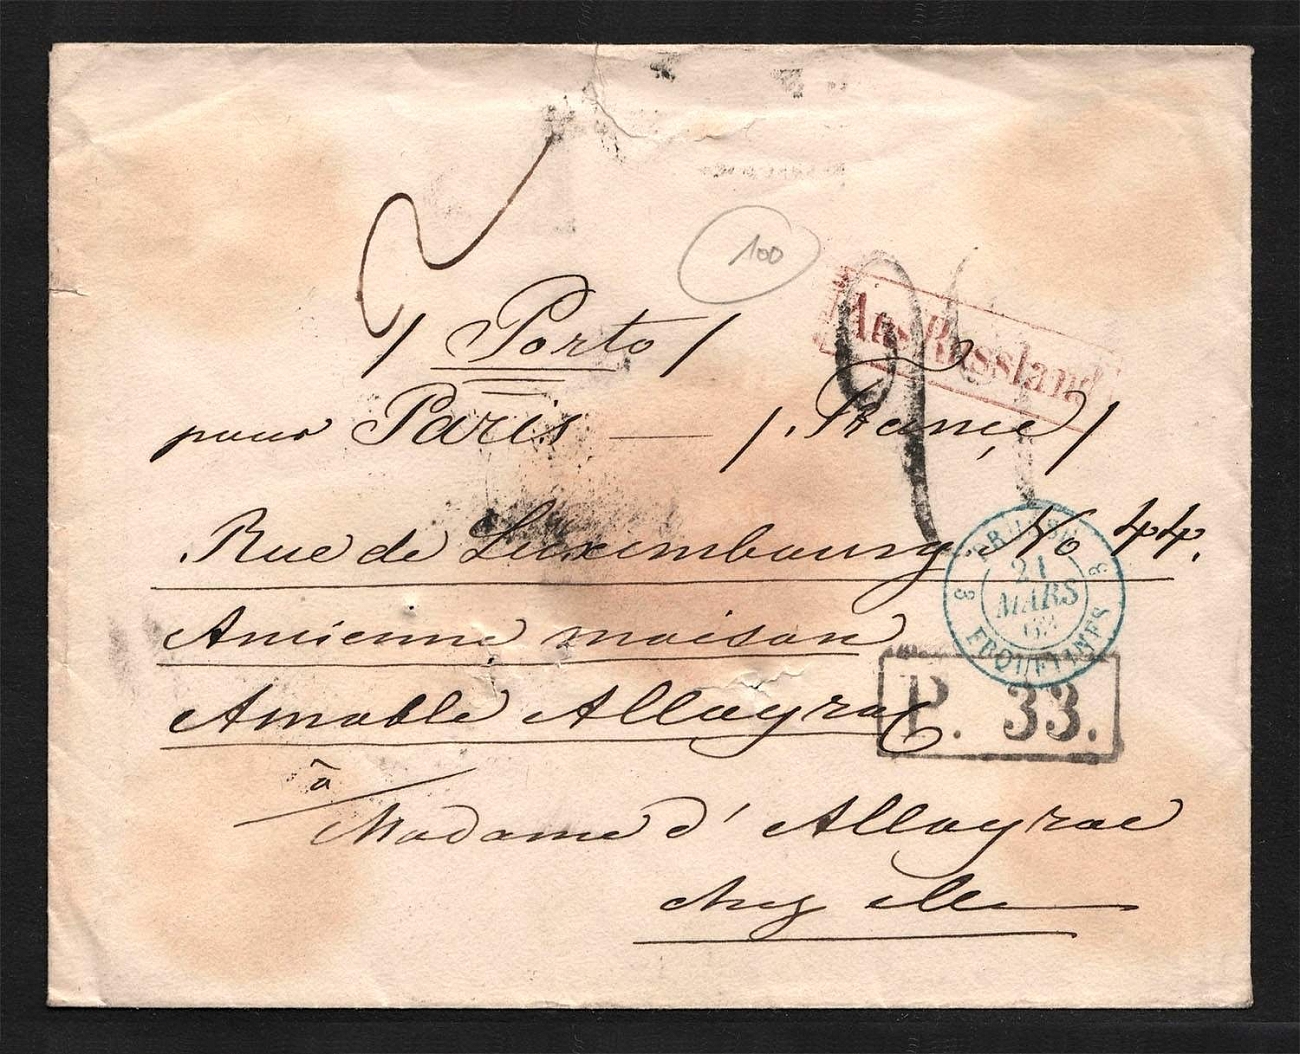 2
100
/ Porto /
Aus Russland
pour Paris — /. France /
Rue de Luxembourg. No 44.
Ancienne maison
PRUSSE
3 3
21
MARS
62
ERQUELINES
Amable Allagrae
P. 33.
à
Madame d' Allagrae
chez elle